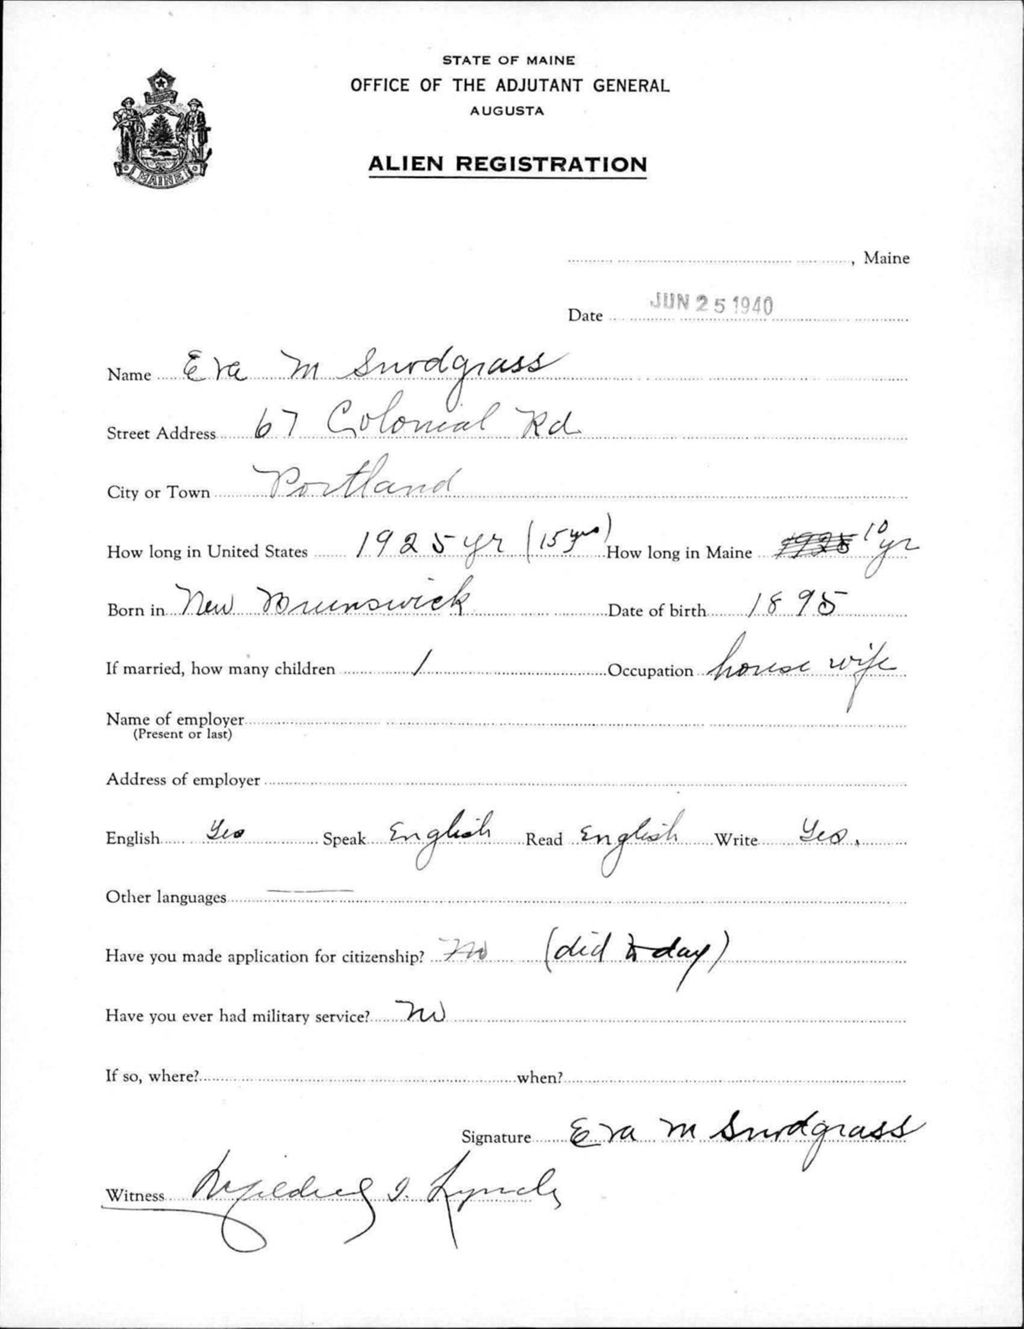 STATE OF MAINE
OFFICE OF THE ADJUTANT GENERAL
AUGUSTA
ALIEN REGISTRATION
MAINE
, Maine
Date JUN 25 1940
Name Eva M Snodgrass
Street Address 67 Colonial Rd
City or Town Portland
How long in United States 1925 yr (15 yrs) How long in Maine 1925 10 yr
Born in New Brunswick Date of birth 1895
If married, how many children 1 Occupation house wife
Name of employer
(Present or last)
Address of employer
English Yes Speak English Read English Write Yes.
Other languages
Have you made application for citizenship? No (did to day)
Have you ever had military service? No
If so, where? when?
Signature Eva M Snodgrass
Witness Mildred I. Lynch